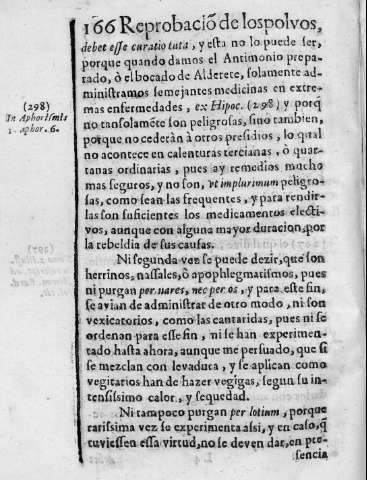 166 Reprobaciō de los polvos,
debet eſſe curatio tuta, y eſta no lo puede ſer,
porque quando damos el Antimonio prepa-
rado, ò el bocado de Alderete, ſolamente ad-
miniſtramos ſemejantes medicinas en extre-
mas enfermedades, ex Hipoc. (298) y porq̄
no tanſolamẽte ſon peligroſas, ſino tambien,
porque no cederàn à otros preſidios, lo qual
no acontece en calenturas tercianas, ò quar-
tanas ordinarias, pues ay remedios mucho
mas ſeguros, y no ſon, vt implurimum peligro-
ſas, como ſean las frequentes, y para rendir-
las ſon ſuficientes los medicamentos electi-
vos, aunque con alguna mayor duracion, por
la rebeldia de sus cauſas.
Ni ſegunda vez ſe puede dezir, que ſon
herrinos, naſſales, ò apophlegmatiſmos, pues
ni purgan per nares, nec per os, y para eſte fin,
ſe avian de adminiſtrar de otro modo, ni ſon
vexicatorios, como las cantaridas, pues ni ſe
ordenan para eſſe fin, ni ſe han experimen-
tado haſta ahora, aunque me perſuado, que ſi
ſe mezclan con levadura, y ſe aplican como
vegitarios han de hazer vegigas, ſegun ſu in-
tenſiſsimo calor, y ſequedad.
Ni tampoco purgan per lotium, porque
rariſsima vez ſe experimenta aſsi, y en caſo, q̄
tuvieſſen eſſa virtud, no ſe deven dar, en pre-
ſencia
(298)
In Aphoriſmis
1. aphor. 6.